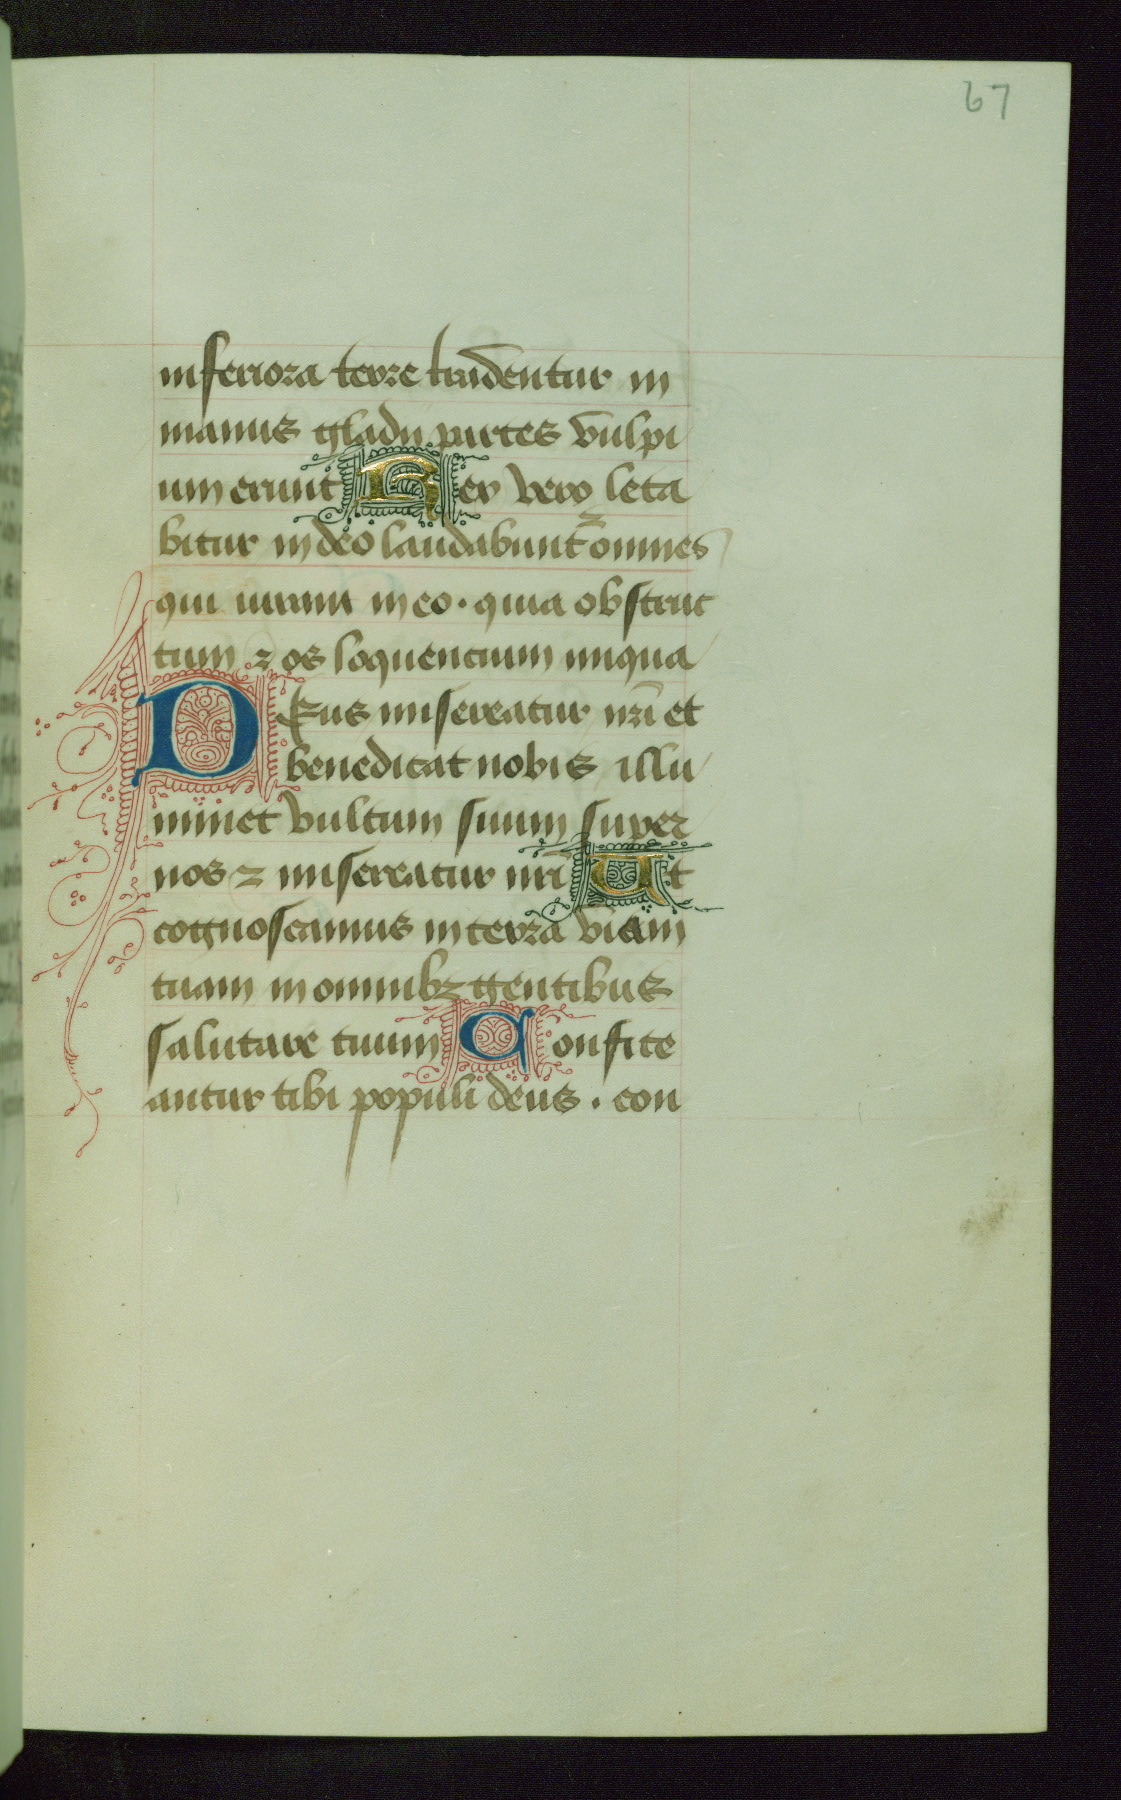 67
inferiora terre tradentur in
manus gladii partes vulpi
um erunt Rex vero leta
bitur in deo laudabunt̄ omnes
qui iurant in eo · quia obstruc
tum ꝛ os loquencium iniqua
Deus misereatur nr̄i et
benedicat nobis illu
minet vultum suum super
nos ꝛ misereatur nr̄i Ut
cognoscamus in terra viam
tuam in omnibꝫ gentibus
salutare tuum Confite
antur tibi populi deus . con